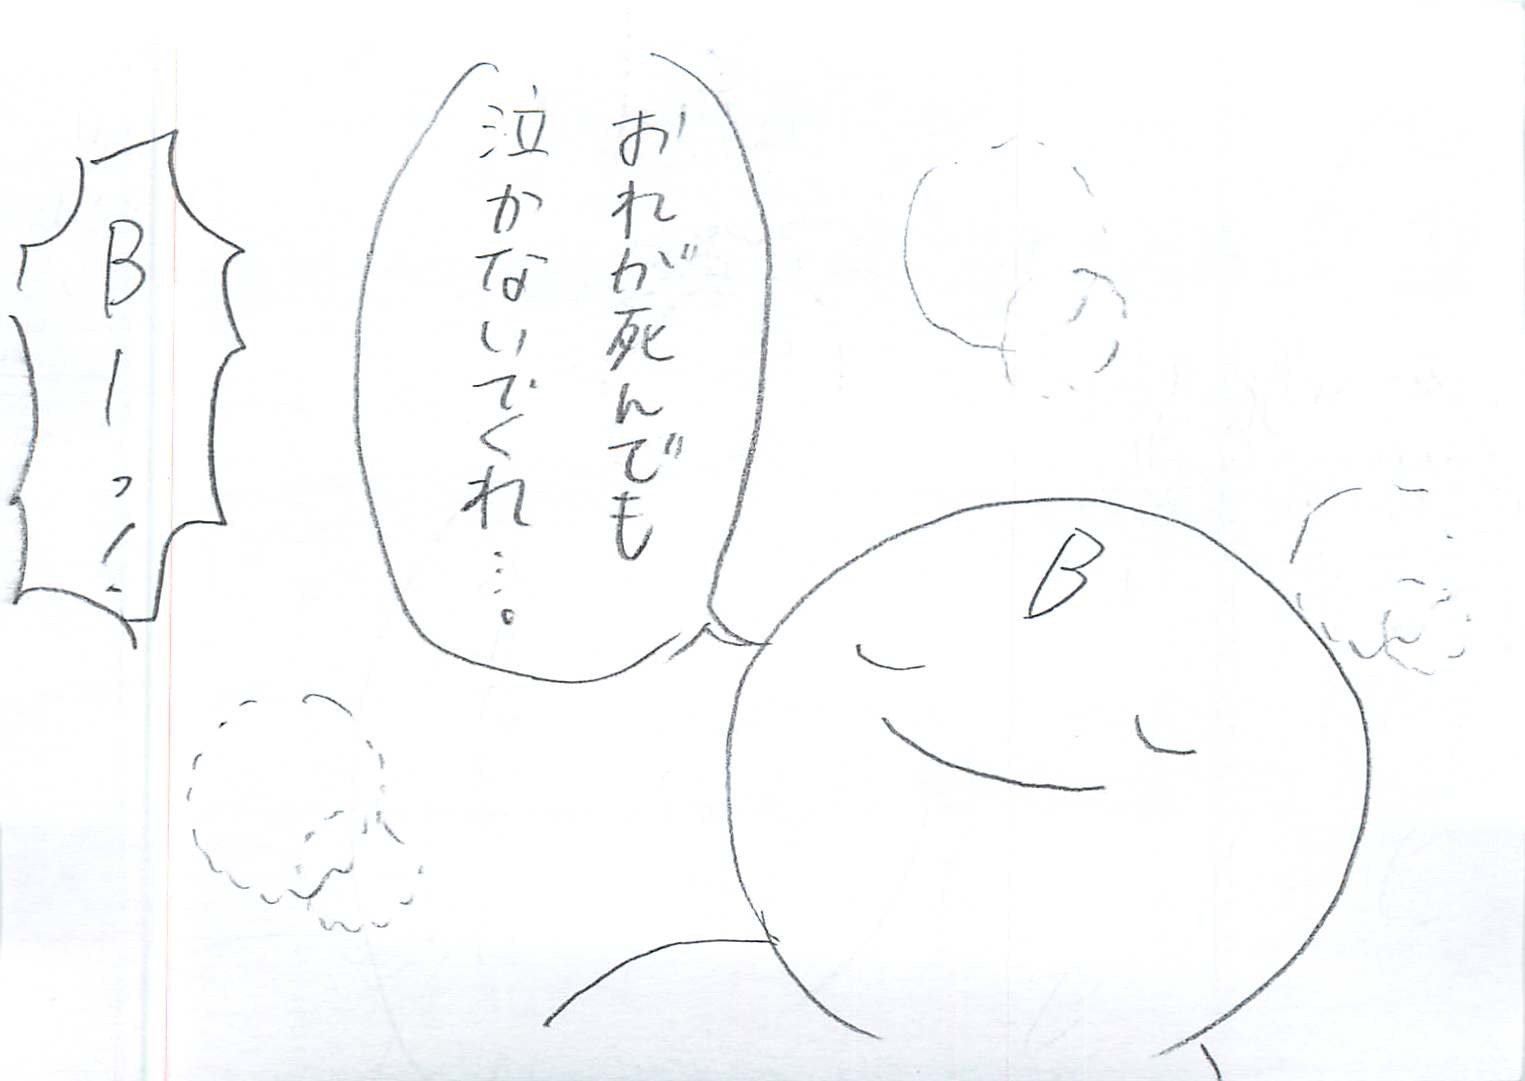 おれが死んでも
泣かないでくれ…。
B
Bーッ!